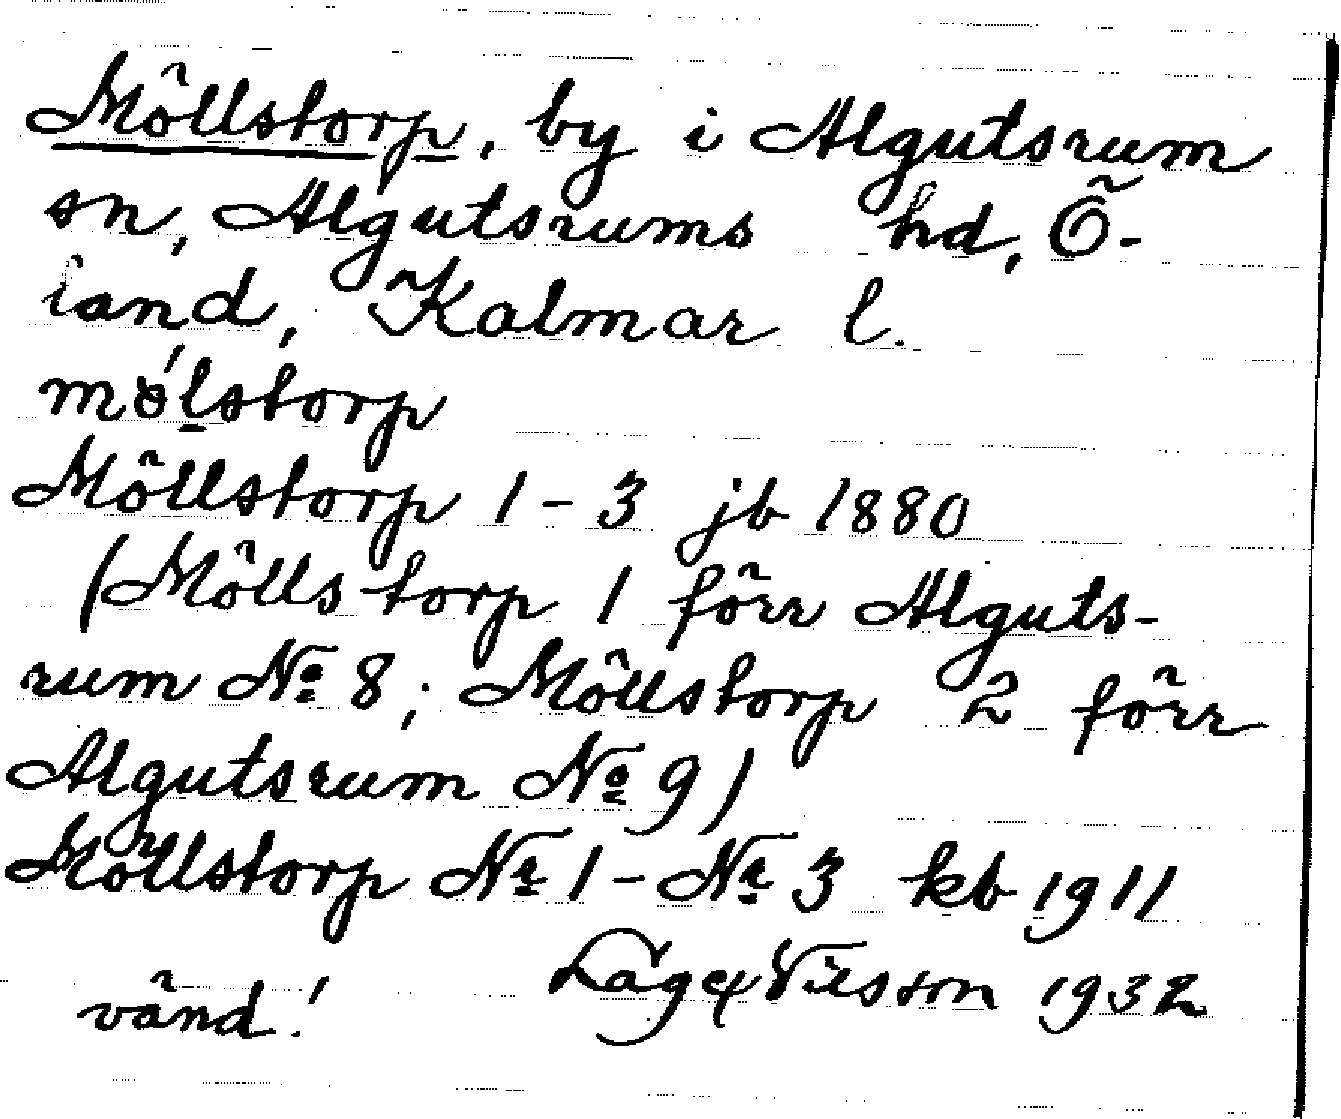 Möllstorp, by i Algutsrum
sn, Algutsrums hd, Ö-
land, Kalmar l.
mǿlstorp
Möllstorp 1-3 jb 1880
(Möllstorp 1 förr Alguts-
rum No 8; Möllstorp 2 förr
Algutsrum No 9)
Möllstorp No 1 - No 3 kb 1911
Nilsson 1932
vänd!